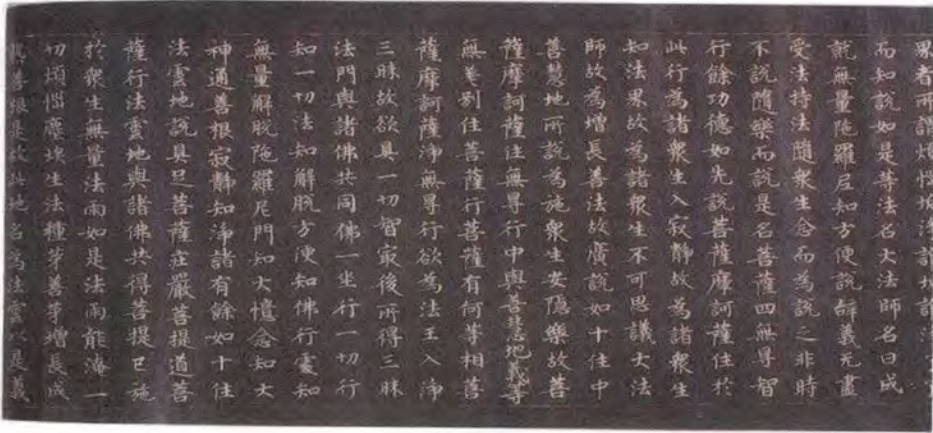 而知說如是等法名大法師名曰成
就無量陁羅尼知方便說辭義无盡
受法持法隨衆生念而為說之非時
不說隨樂而說是名菩薩四無㝵智
行餘功德如先說菩薩摩訶薩住於
此行為諸衆生入寂靜故為諸衆生
知法果故為諸衆生不可思議大法
師故為增長善法故廣說如十住中
善慧地所說為施衆生安隱樂故菩
薩摩訶薩住無㝵行中與善慧地義等
無差別住善薩行菩薩有何等相菩
薩摩訶薩淨無㝵行欲為法王入淨
三昧故欲具一切智㝡後所得三昧
法門與諸佛共同佛一坐行一切行
知一切法知解脫方便知佛行處知
無量解脫陁羅尼門知大憶念知大
神通善根寂靜知淨諸有餘如十住
法雲地說具足菩薩莊嚴菩提道菩
薩行法雲地與諸佛共得菩提已施
於衆生無量法雨如是法雨能滅一
切煩惱塵埃生法種芽善芽增長成
善根是故此地名為法雲以是義